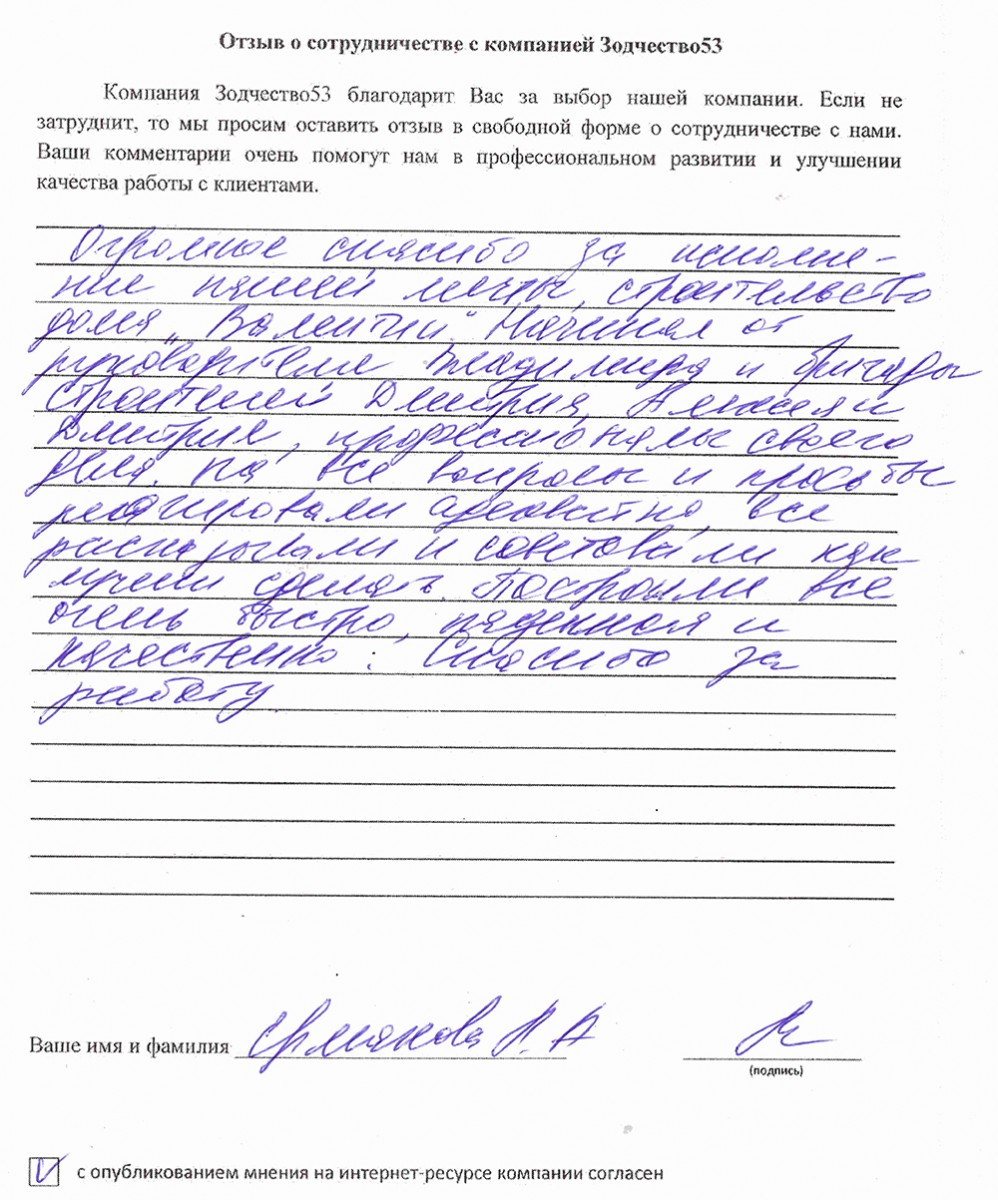 Отзыв о сотрудничестве с компанией Зодчество53
Компания Зодчество53 благодарит Вас за выбор нашей компании. Если не
затруднит, то мы просим оставить отзыв в свободной форме о сотрудничестве с нами.
Ваши комментарии очень помогут нам в профессиональном развитии и улучшении
качества работы с клиентами.
Огромное спасибо за исполне-
ние нашей мечты, строительство
дома „Валентин". Начиная от
руководителя Владимира и бригады
строителей Дмитрия, Алексея и
Дмитрия, профессионалы своего
дела. На все вопросы и просьбы
реагировали адекватно, все
рассказывали и советовали как
лучше сделать. Построили все
очень быстро, надежно и
качественно! Спасибо за
работу
Ваше имя и фамилия Ермакова Н. А
(подпись)
с опубликованием мнения на интернет-ресурсе компании согласен